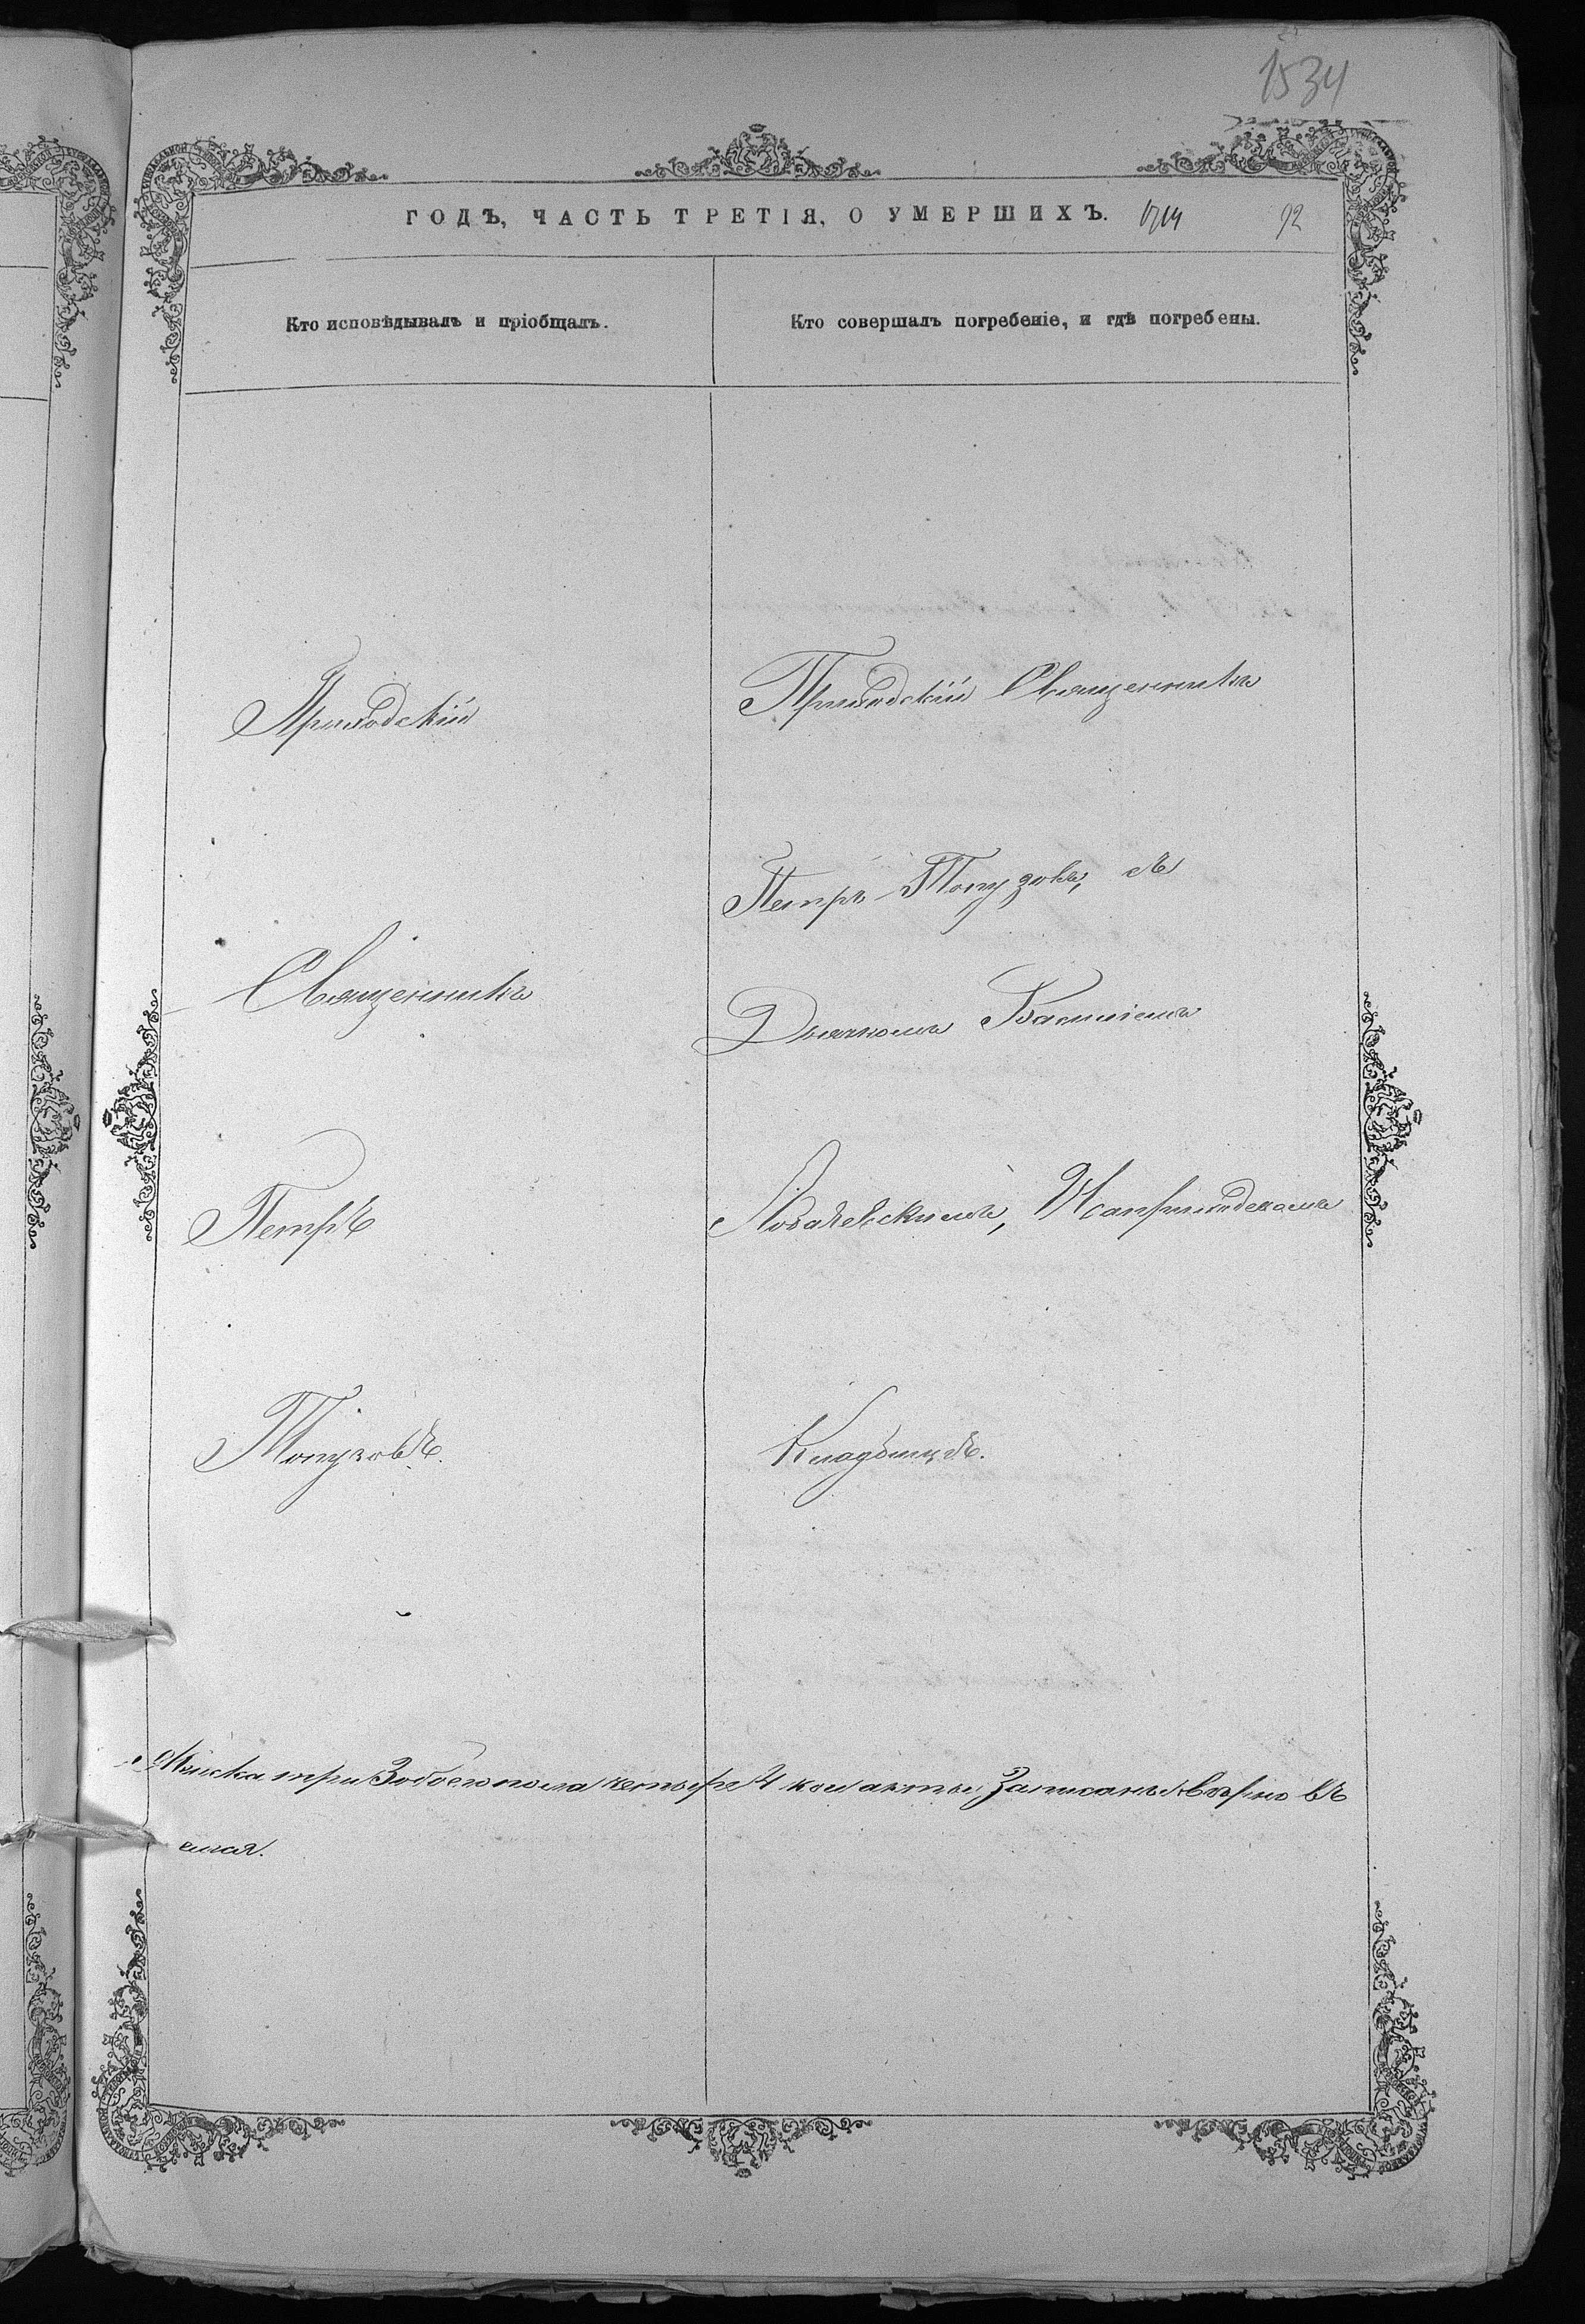 1534
ГОДЪ, ЧАСТЬ ТРЕТІЯ, О УМЕРШИХЪ. 92
Кто исповѣдывалъ и пріобщалъ.
Кто совершалъ погребеніе, и гдѣ погребены.
Приходскій
Священникъ
Петръ
Топузовъ.
Приходскій Священникъ
Петръ Топузовъ, съ
Дьячкомъ Василіемъ
Лобачевскимъ, На приходскомъ
Кладбищѣ.
три 3 обоего пола четыре 4 кои акты записаны верно въ